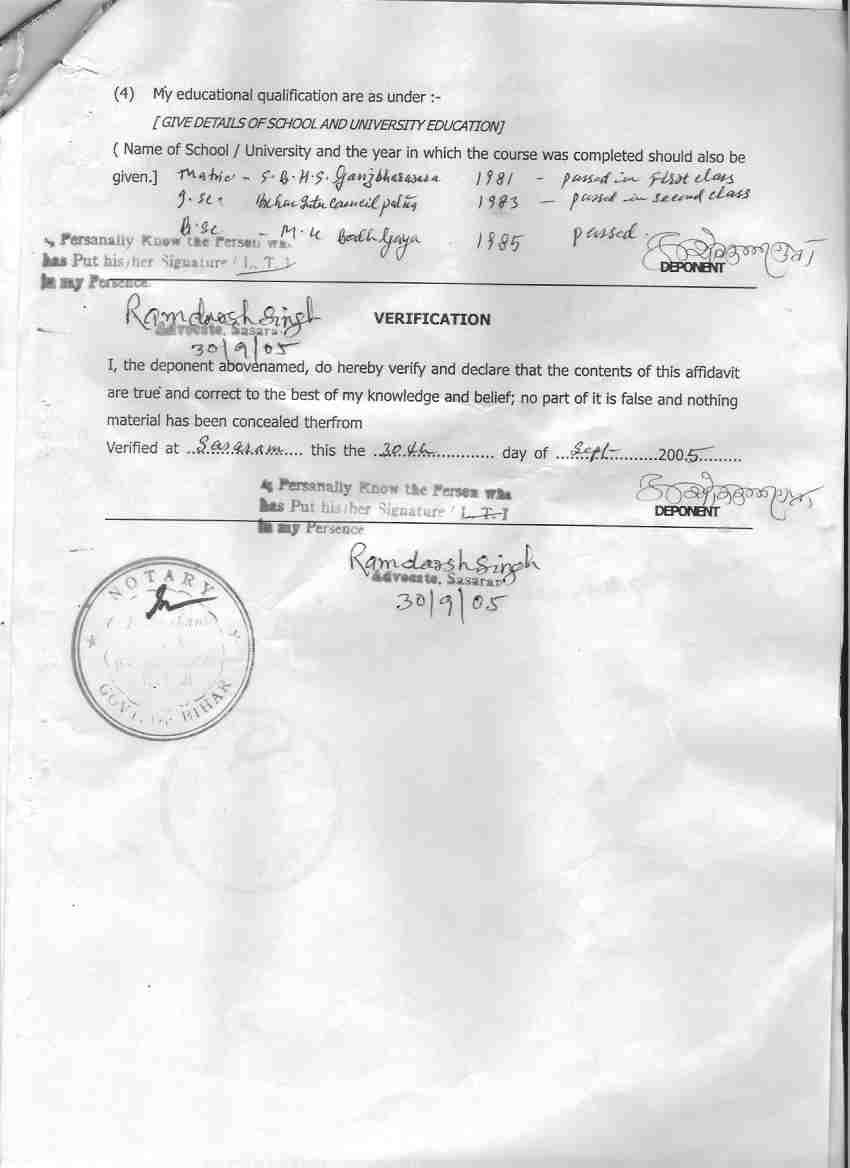 (4) My educational qualification are as under :-
[ GIVE DETAILS OF SCHOOL AND UNIVERSITY EDUCATION]
( Name of School / University and the year in which the course was completed should also be
given.] Matric - S. B. H. S. 1981 - passed in First class
I. Sc. Bihar Inter Council 1983 - passed in second class
B. Sc - M. U Bodh Gaya 1985 passed.
Persanally Know the Person who
has Put his/her Signature / L. T. I
in my Persence.
DEPONENT
Ramdarsh Singh
Advocate, Sasaram
30/9/05
VERIFICATION
I, the deponent abovenamed, do hereby verify and declare that the contents of this affidavit
are true and correct to the best of my knowledge and belief; no part of it is false and nothing
material has been concealed therfrom
Verified at ..Sasaram.... this the ..30th.............. day of ...Sept............2005.........
Persanally Know the Person who
has Put his/her Signature / L. T. I
in my Persence
DEPONENT
Ramdarsh Singh
Advocate, Sasaram
30/9/05
NOTARY
GOVT. OF BIHAR